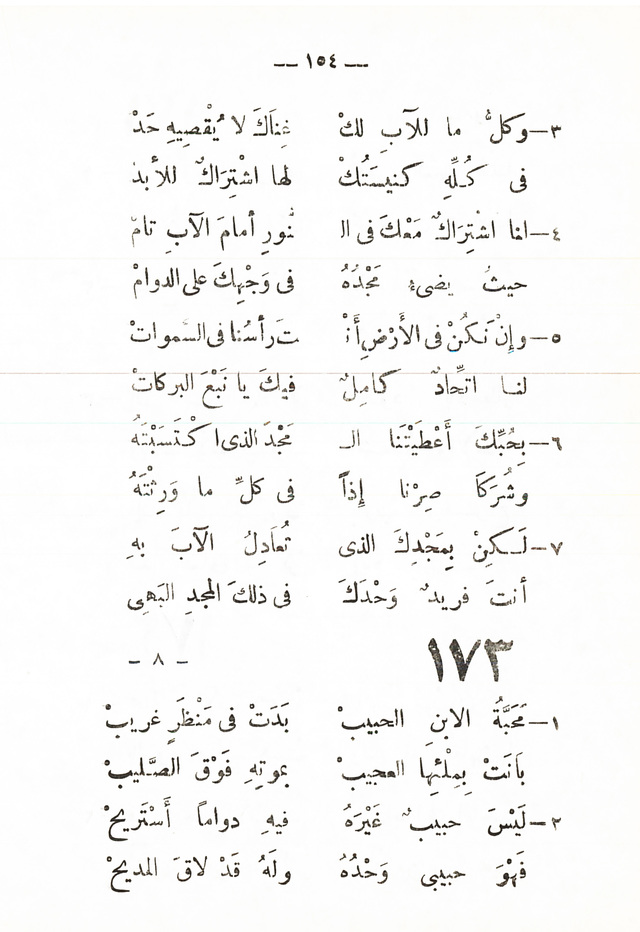 — ١٥٤ —
٣—وَكلُّ ما للآبِ لكْ غِنَاكَ لا يُقْصِيهِ حَدْ
فى كُلِّهِ كنيسَتُكْ لها اشْتِرَاكٌ للأبدْ
٤—لنا اشتِرَاكٌ مَعْكَ فى الـ ـنُّورِ أمامَ الآبِ تامّ
حيثُ يضىءُ مَجْدُهُ فى وَجْهِكَ على الدوامْ
٥—وإنْ نَكُنْ فى الأَرْضِ أَنْـ ـتَ رأسُنا فى السَّمواتْ
لنا اتِّحادٌ كامِلٌ فيكَ يا نَبْعَ البركاتْ
٦—بِحُبِّكَ أَعْطَيْتَنا الـ ـمَجْدَ الذى اكْتَسَبْتَهُ
وشُرَكَا صِرْنا إذاً فى كلِّ ما وَرِثْتَهُ
٧—لَـكِنْ بِمَجْدِكَ الذى تُعَادِلُ الآبَ بِهِ
أنتَ فريدٌ وَحْدَكَ فى ذلكَ المجدِ البَهِى
١٧٣ - ٨ -
١—مَحَبَّةُ الابنِ الحبيبْ بَدَتْ فى مَنْظَرٍ غريبْ
بَانَتْ بِمِلْئِها العجيبْ بموتِهِ فَوْقَ الصَّليبْ
٢—لَيْسَ حبيبٌ غَيْرَهُ فيهِ دواماً أَسْتَريحْ
فَهْوَ حبيبى وَحْدُهُ ولَهُ قَدْ لاقَ المديحْ